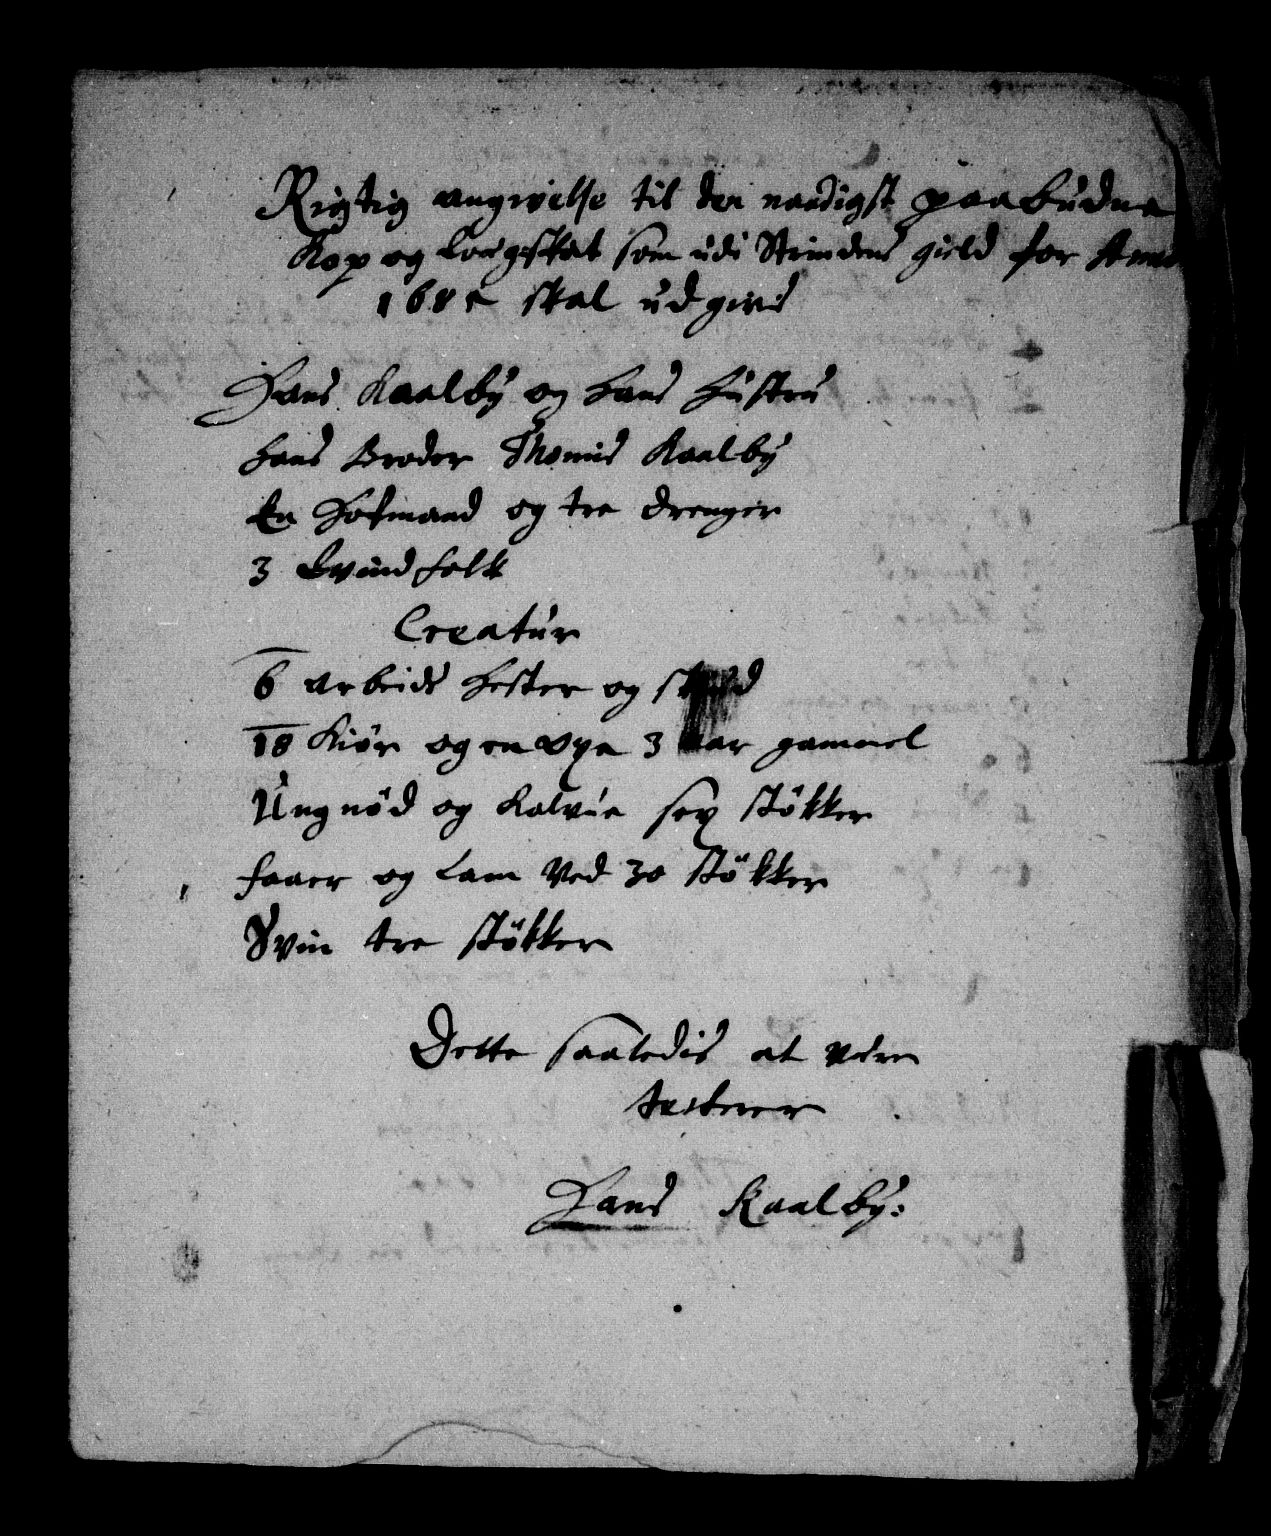 Rigtig angivelse til den naadigst paabudne
Kop og qvægskat som udi Strindens gield for Anno
168 skal udgives
Hans Kaalby og hans hustru
hans Broder Thomis Kaalby
En Hofmand og tre drenger
3 qvindfolk
Creatur
6 arbeids hester og
18 Kiör og en oxe 3 aar gammel
Ungnöd og Kalve sex stökker
faaer og lam ved 30 stökker
Svin tre stökker
Dette saaledis at være
testerer
Hans Kaalby: